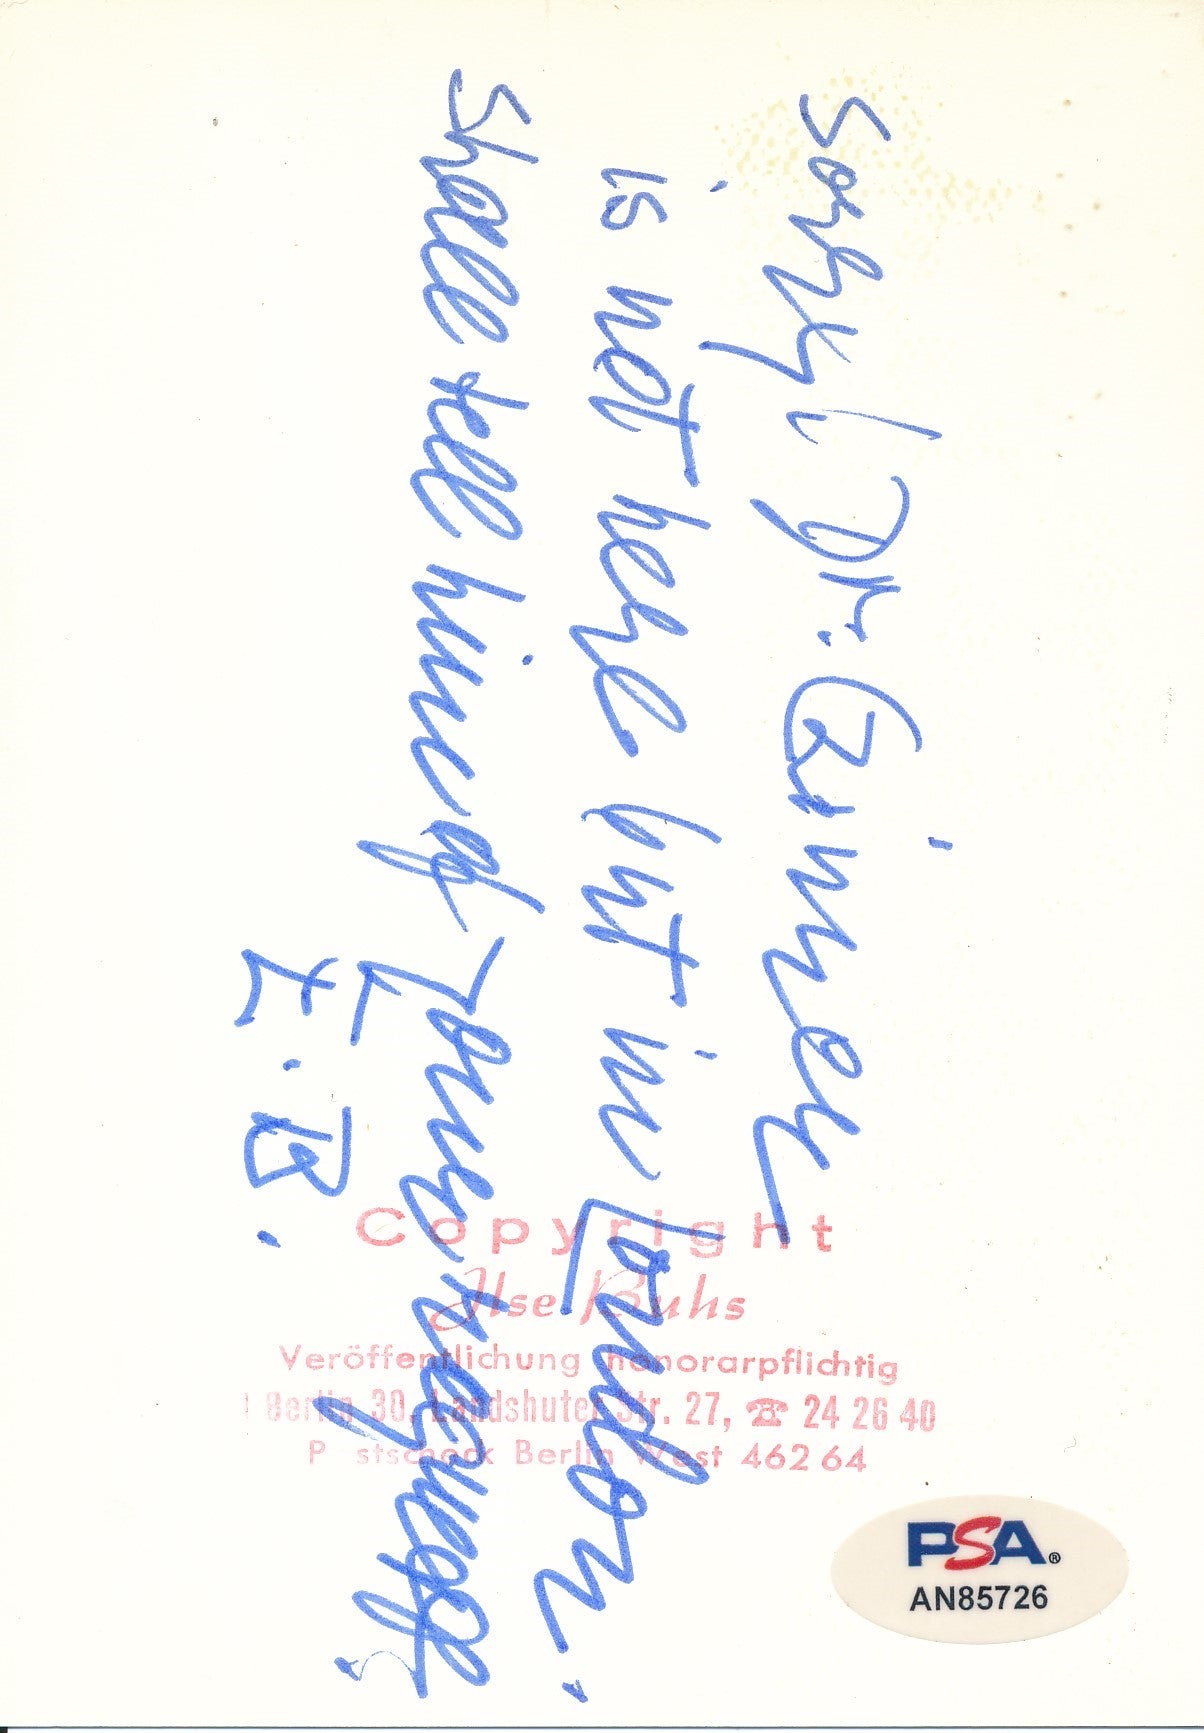 Sorry! Dr. Czinner
is not here but in London.
shall tell him of your request
E.B.
Copyright
Ilse Buhs
Veröffentlichung honorarpflichtig
1 Berlin 30, Landshuter Str. 27, ☎ 24 26 40
Postscheck Berlin West 462 64
PSA®
AN85726